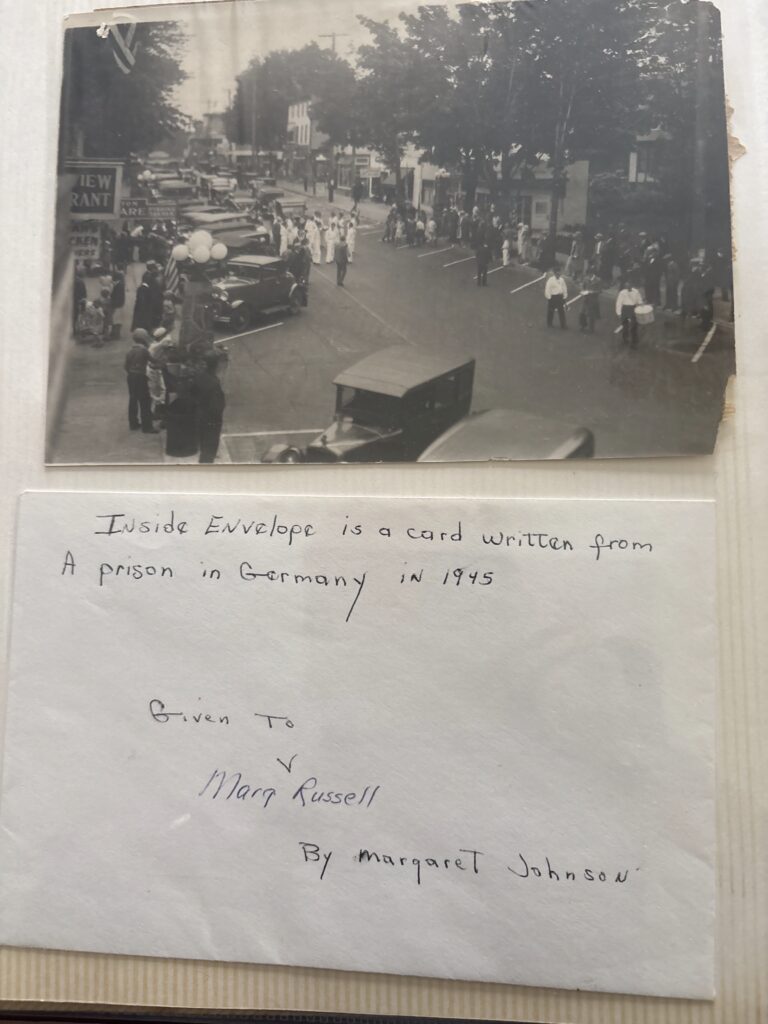 VIEW
RANT
ARE
Inside Envelope is a card written from
A prison in Germany in 1945
Given To
Marg Russell
By Margaret Johnson